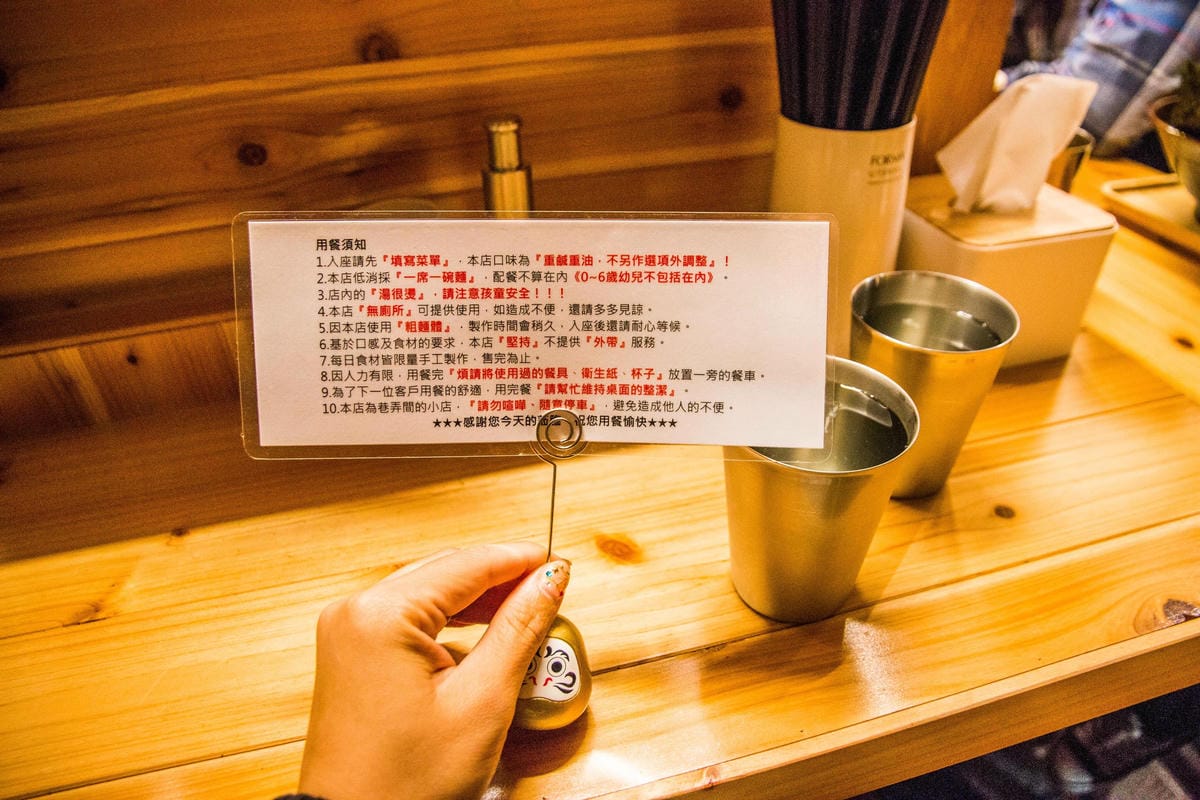 用餐須知
1.入座請先『填寫菜單』，本店口味為『重鹹重油，不另作選項外調整』！
2.本店低消採『一席一碗麵』，配餐不算在內《0~6歲幼兒不包括在內》。
3.店內的『湯很燙』，請注意孩童安全！！！
4.本店『無廁所』可提供使用，如造成不便，還請多多見諒。
5.因本店使用『粗麵體』，製作時間會稍久，入座後還請耐心等候。
6.基於口感及食材的要求，本店『堅持』不提供『外帶』服務。
7.每日食材皆限量手工製作，售完為止。
8.因人力有限，用餐完『煩請將使用過的餐具、衛生紙、杯子』放置一旁的餐車。
9.為了下一位客戶用餐的舒適，用完餐『請幫忙維持桌面的整潔』。
10.本店為巷弄間的小店，『請勿喧嘩、隨意停車』，避免造成他人的不便。
★★★感謝您今天的 祝您用餐愉快★★★